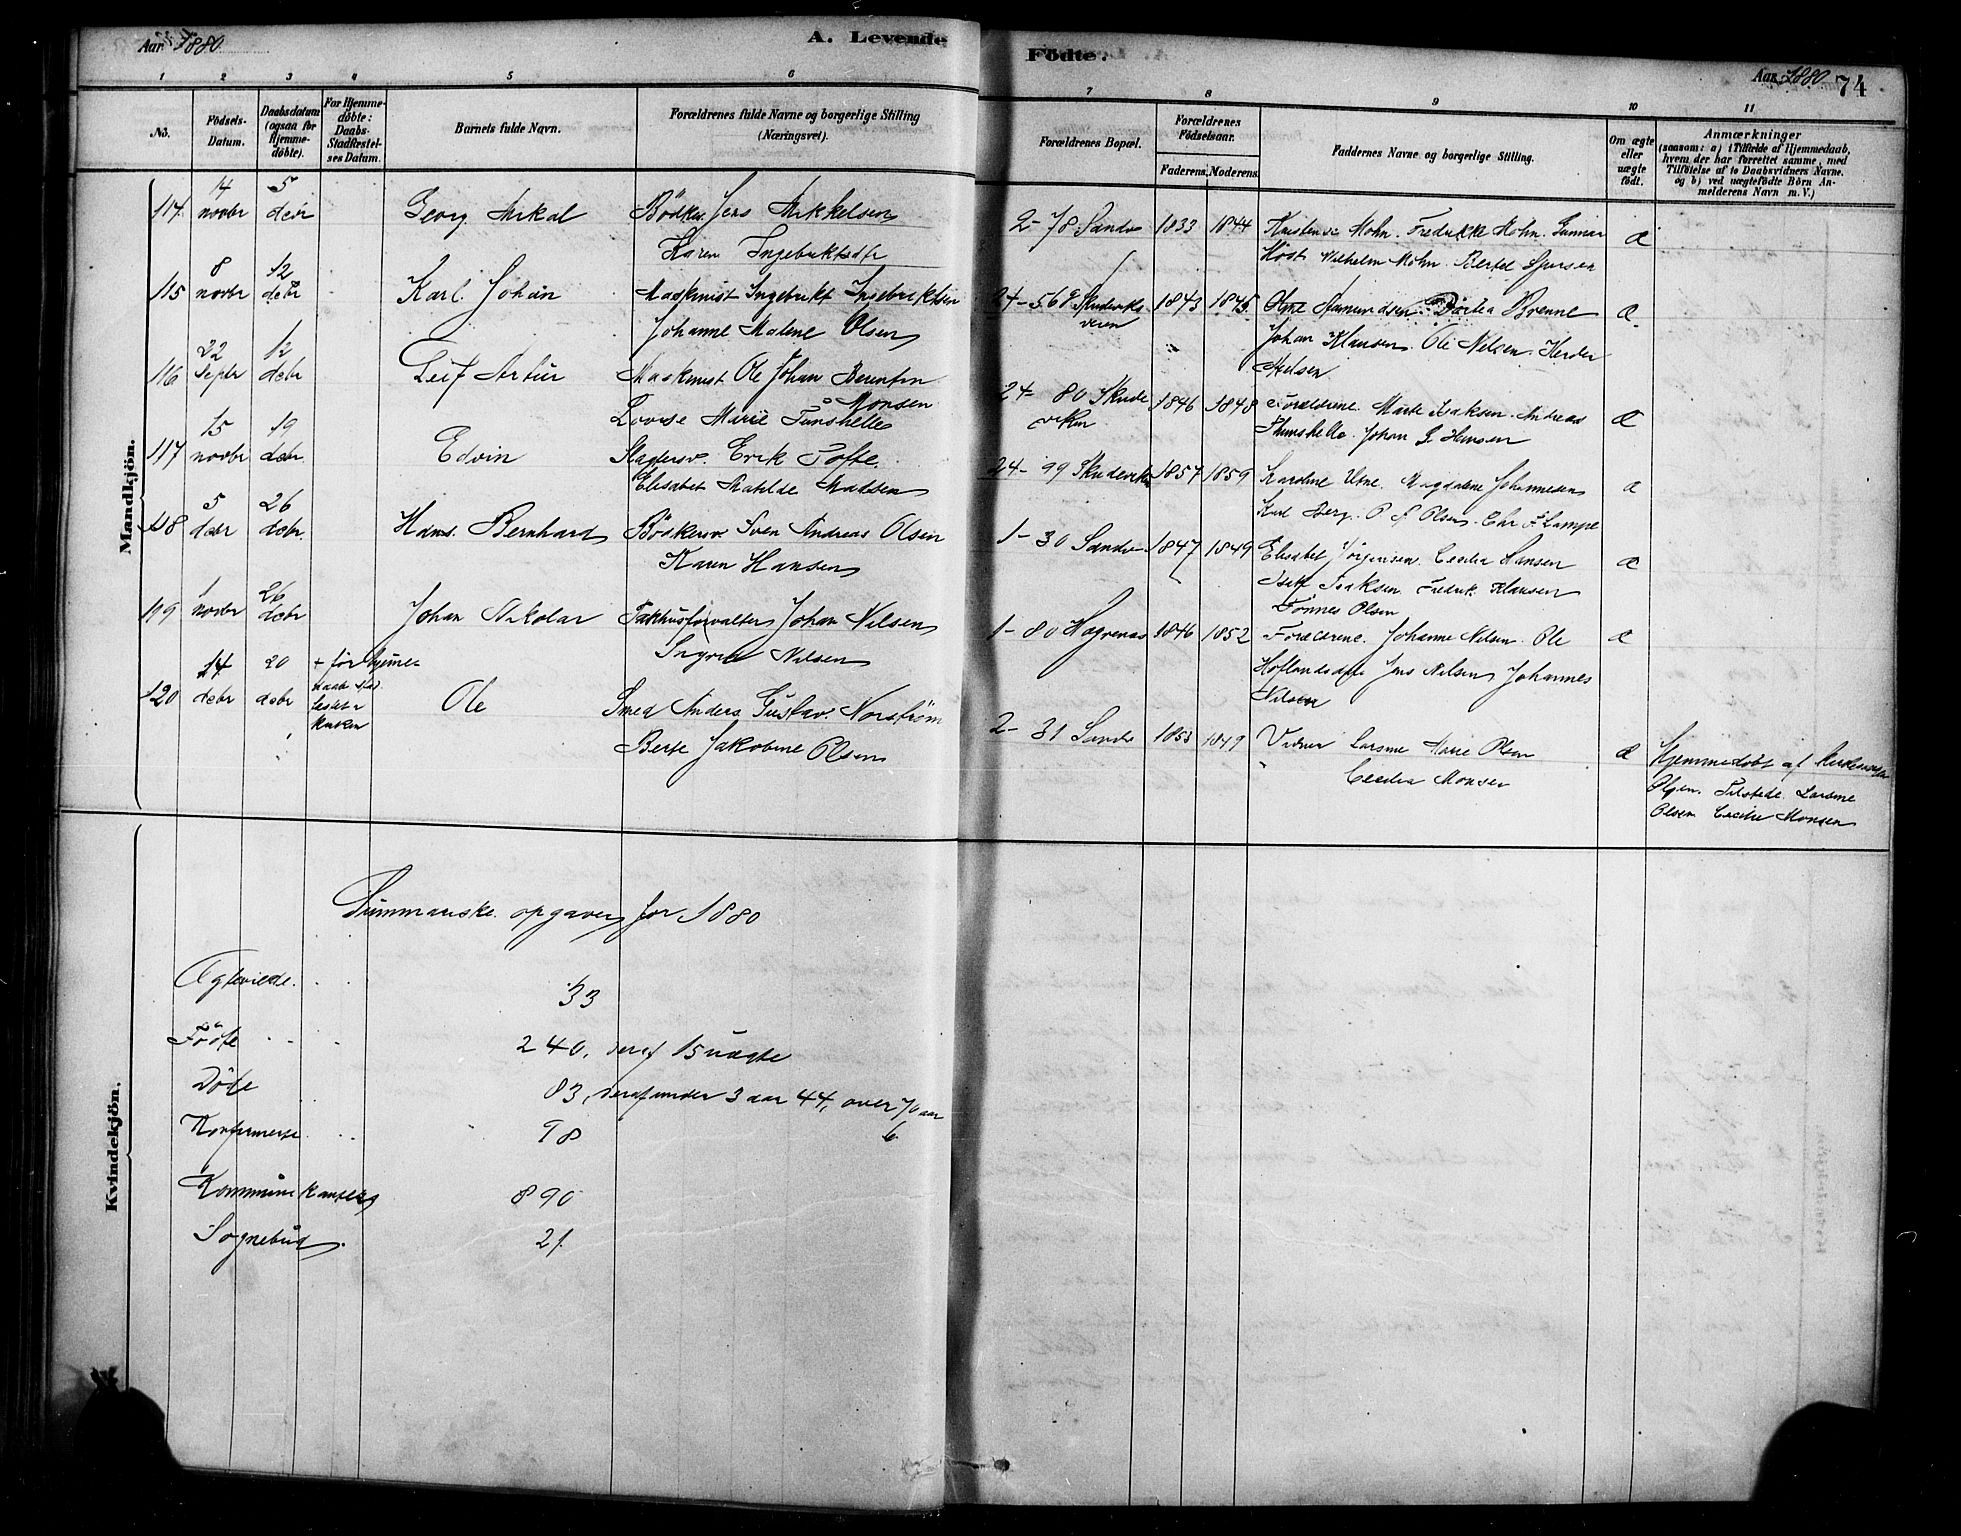 Aar 1880
A. Levende
Födte.
Aar 1880
74
1 2 3 4 5 6 7 8 9 10 11
No.
Födsels-
Datum.
Daabsdatum
(ogsaa for
Hjemme-
döbte).
For Hjemme-
döbte:
Daabs-
Stadfæstel-
ses Datum.
Barnets fulde Navn.
Forældrenes fulde Navne og borgerlige Stilling
(Næringsvei).
Forældrenes Bopæl.
Forældrenes
Födselsaar.
Faderens. Moderens.
Faddernes Navne og borgerlige Stilling.
Om ægte
eller
uægte
født.
Anmærkninger
(saasom: a) i Tilfælde af Hjemmedaab,
hvem der har forrettet samme, med
Tilföielse af to Daabsvidners Navne,
og b) ved uægtefödte Börn An-
melderens Navn m. V.)
Mandkjön.
114 4 novbr 5 debr Georg Mikal Bödker Jens Mikkelsen
Karen Ingebrektsdtr
2-78 Sandv 1833 1844 Mohn. Fredrikke Mohn. Gunnar
Höst Wilhelm Mohn. Bertel
æ
115 8 novbr 12 debr Karl Johan Maskinist Ingebrikt Ingebriktsen
Johanne Malene Olsen
24-568 Skudeviks
veien 1843 1845 Olene Aamundsen Dortea Brenne
Johan Klausen. Ole Nilsen.
æ
116 22 Septr 12 debr Leif Artur Maskinist Ole Johan Berentin
Monsen
Lovise Marie Tunshelle
24-80 Skude
viken 1846 1848 Forældrene. Marte Isaksen. Andreas
Thunshelle. Johan G. Hansen
Æ
117 15 novbr 19 debr Edvin Slagtersv. Erik Tofte.
Elisabet Matilde Madsen
24-99 Skudeviken 1857 1859 Karoline Utne. Magdalene Johannesen
Karl Berg. P. A. Olsen. Chr. F. Lampe
æ
118 5 debr 26 debr Hans Bernhard Bödkersv Sven Andreas Olsen
Karen Hansen
1-30 Sandv 1847 1849 Elisabet Jörgensen. Cecilia Hansen
Isak Isaksen. Fredrik Klausen
Tönnes Olsen
æ
119 1 novbr 26 debr Johan Nikolai Pakhusforvalter Johan Nilsen
Ingrid Nilsen
1-80 Hægrenæs 1846 1852 Forældrene. Johanne Nilsen. Ole
Jens Nilsen Johannes
Nilsen
æ
120 14 debr 20 debr + før hjemme
daab stad
festet i
kirken
Ole Smed Anders Gustav Norström
Berte Jakobine Olsen
2-31 Sandv 1853 1849 Vidner Larsine Marie Olsen
" Cecilia Monsen
æ Hjemmedöbt af
Olsen. Tilstede Larsine
Olsen Cecilie Monsen
Kvindekjön.
Summariske opgaver for 1880
Ægteviede. . . 33
Födte - - - 240, deraf 15 uægte
Döde 83, deraf under 3 aar 44, over 70 aar
6
Konfirmerte . . . 98
Kommunikanter 890
Sognebud. 21